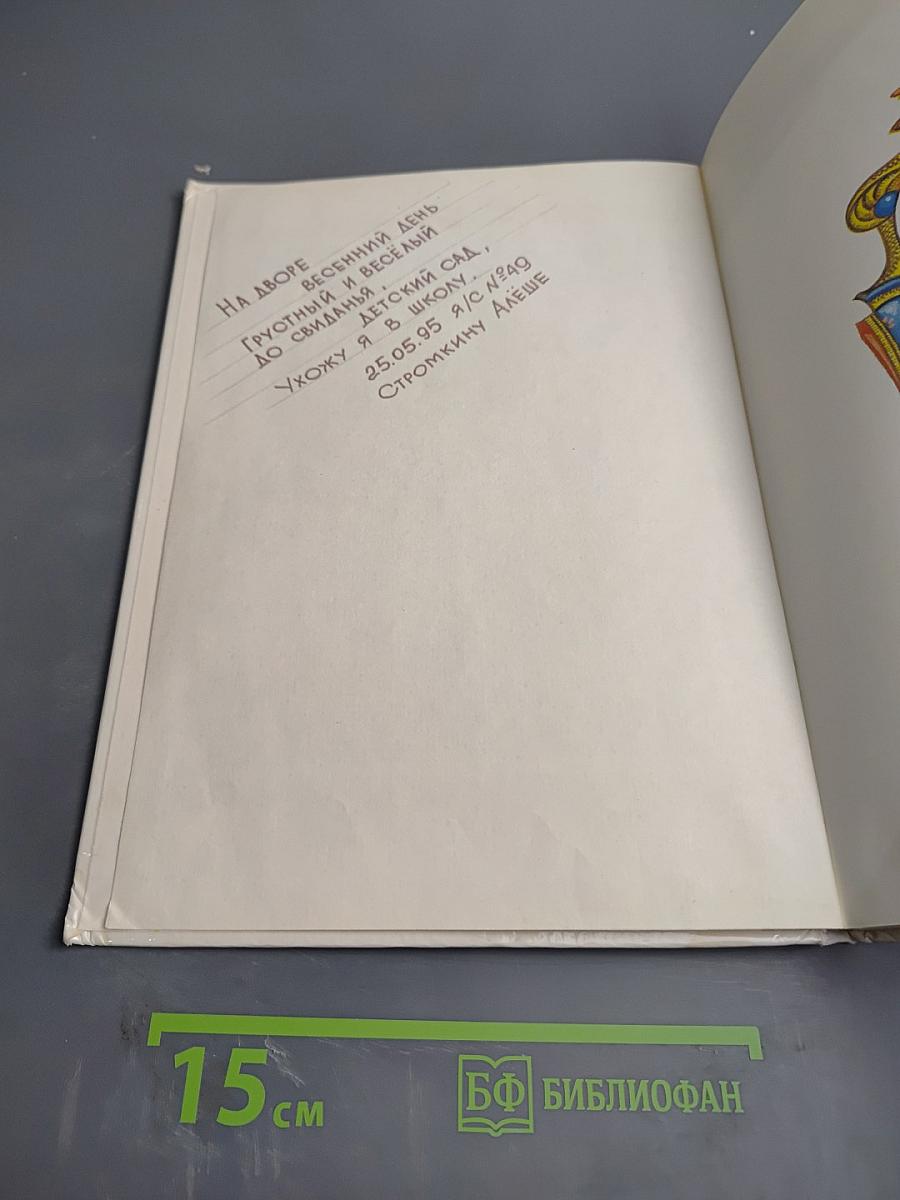 На дворе
весенний день
Грустный и весёлый
до свиданья,
детский сад,
Ухожу я в школу.
25.05.95 я/с №49
Стромкину Алёше
15 см
БФ БИБЛИОФАН